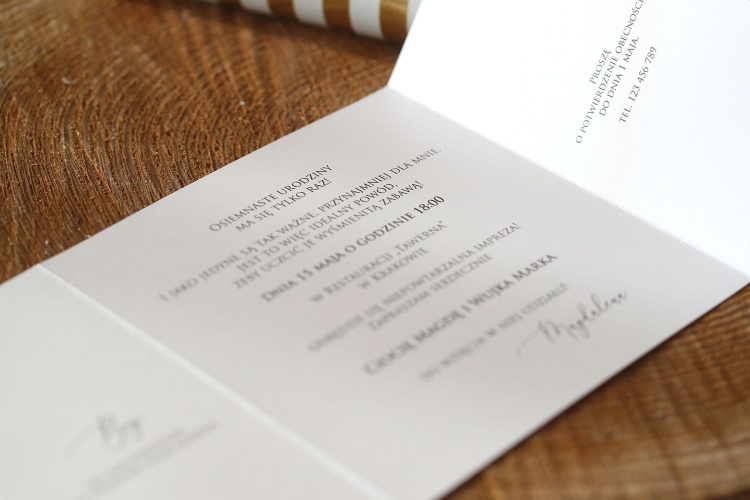 Osiemnaste urodziny
ma się tylko raz!
I jako jedyne są tak ważne, przynajmniej dla mnie.
Jest to więc idealny powód,
żeby uczcić je wyśmienitą zabawą!
Dnia 15 maja o godzinie 18:00
w Restauracji „Tawerna”
w Krakowie
odbędzie się niepowtarzalna impreza!
Zapraszam serdecznie
Ciocię Magdę i Wujka Marka
do wzięcia w niej udziału!
Magdalena
Proszę
o potwierdzenie obecności
do dnia 1 maja.
tel. 123 456 789